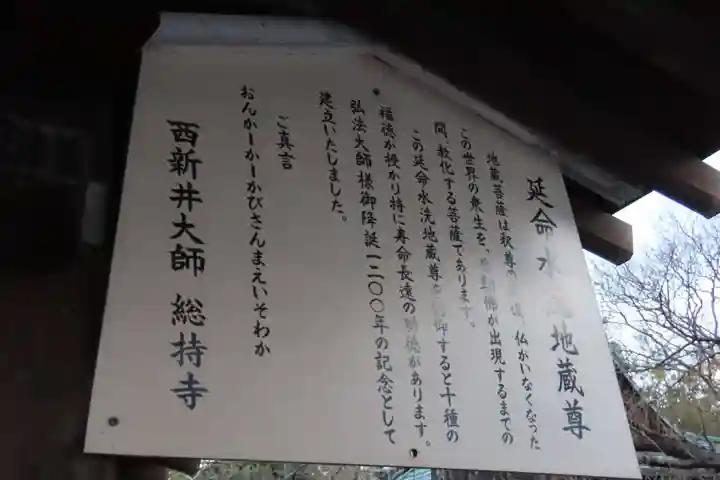 延命水洗地蔵尊
地蔵菩薩は釈尊の 、仏がいなくなった
この世界の衆生を、 佛が出現するまでの
間、教化する菩薩であります。
この延命水洗地蔵尊を 仰すると十種の
福徳が授かり特に寿命長遠の 徳があります。
弘法大師様御降誕一二〇〇年の記念として
建立いたしました。
ご真言
おんかーかーかびさんまえいそわか
西新井大師 総持寺